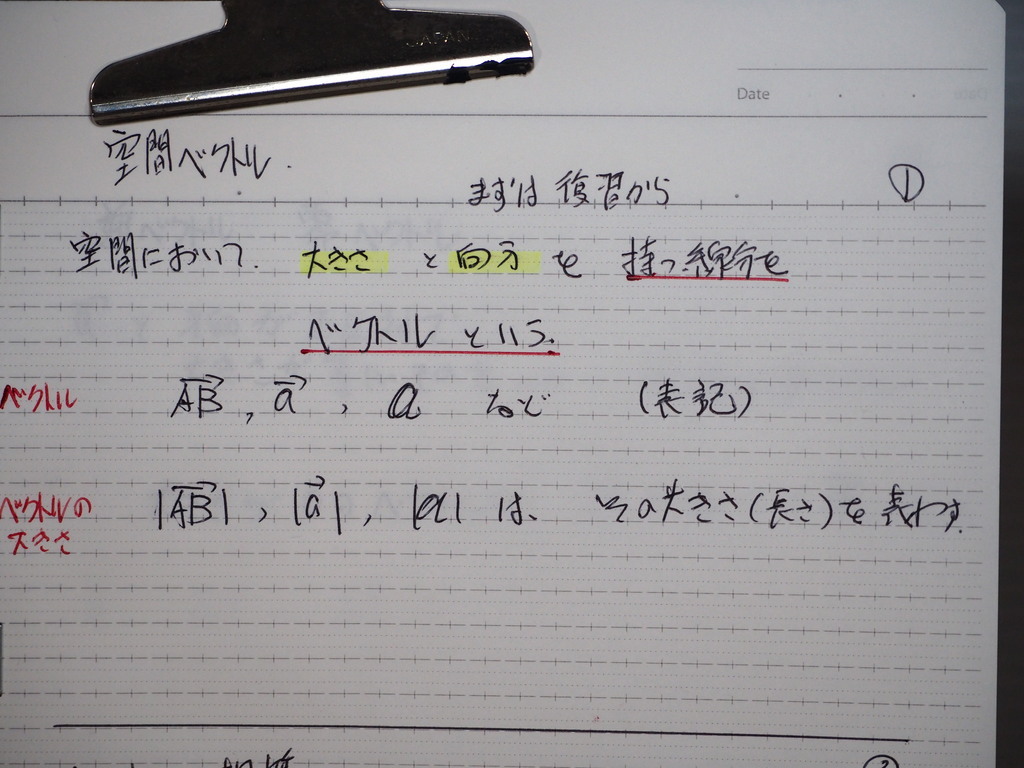 JAPAN
Date
空間ベクトル.
まずは 復習から
①
空間において. 大きさ と 向き を 持つ線分を
ベクトル という.
ベクトル $\overrightarrow{AB}$, $\vec{a}$, $a$ など (表記)
ベクトルの大きさ $|\overrightarrow{AB}|$, $|\vec{a}|$, $|a|$ は、 その大きさ(長さ)を表わす.